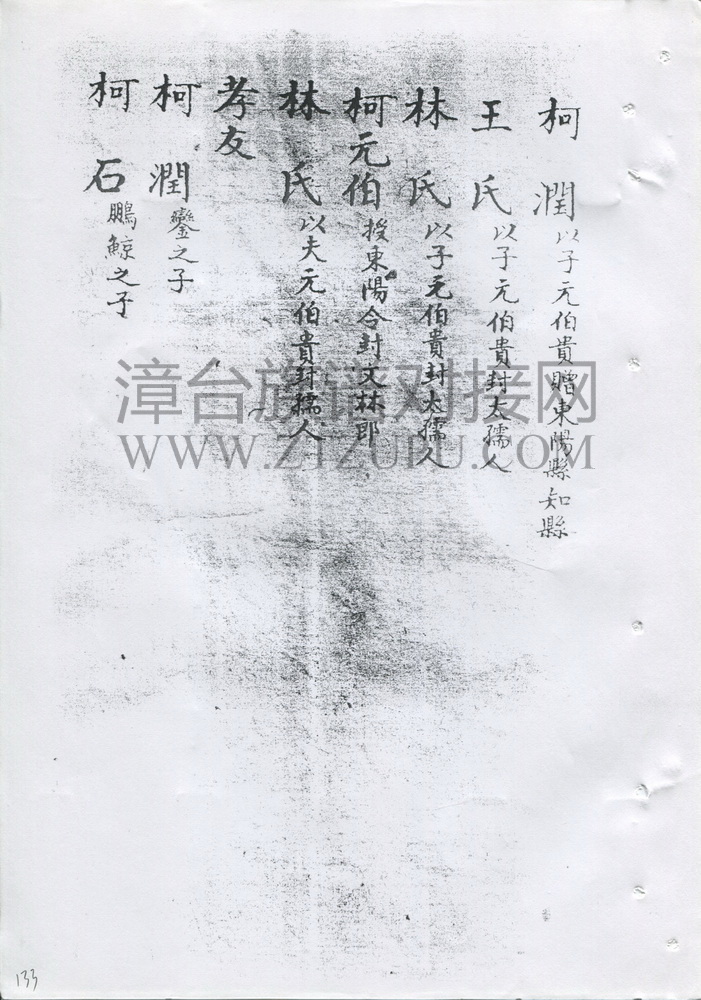 柯潤以子元伯貴贈東陽縣知縣
王氏以子元伯貴封太孺人
林氏以子元伯貴封太孺人
柯元伯授東陽令封文林郎
林氏以夫元伯貴封孺人
孝友
柯潤鑾之子
柯石鵬鯨之子
漳台族谱对接网
WWW.ZTZUPU.COM
133